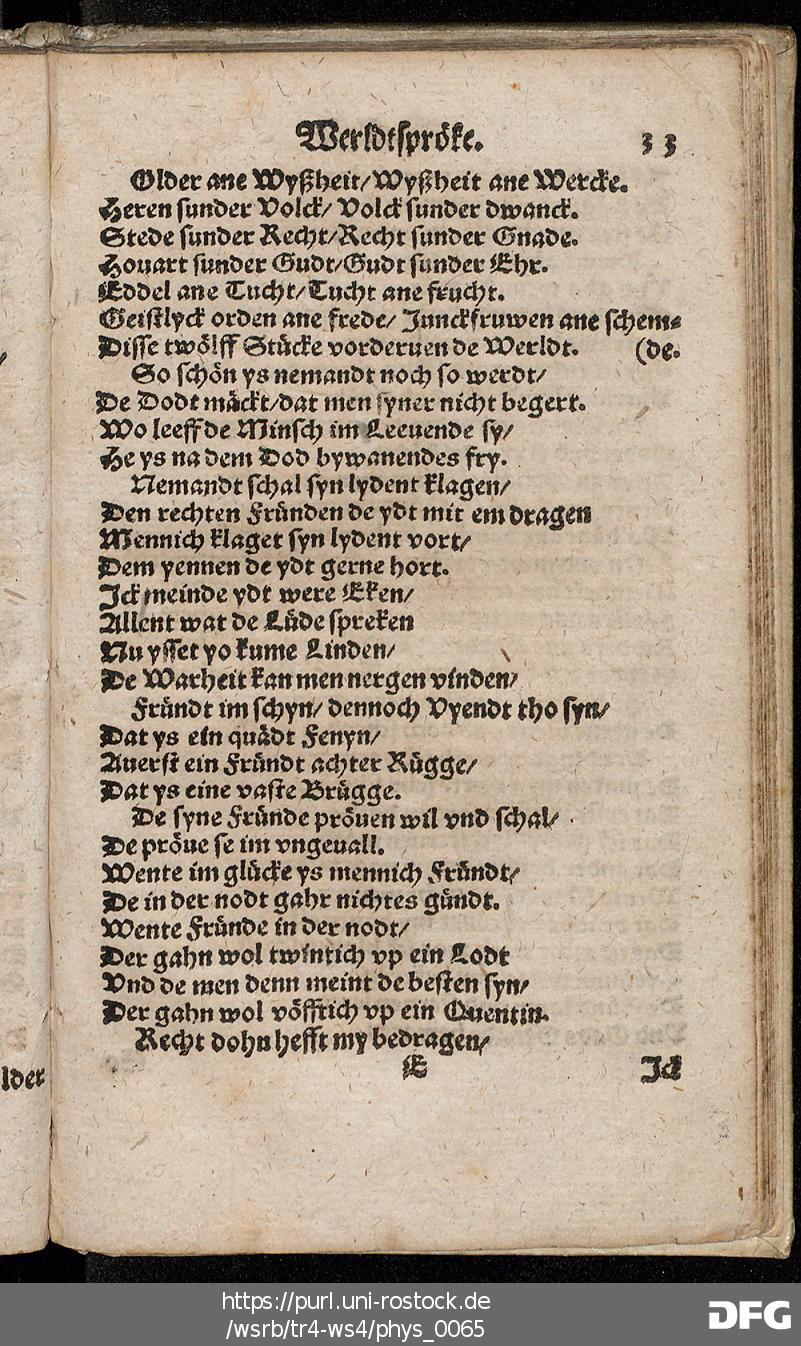 Werldtspröke. 33
Older ane Wyßheit/Wyßheit ane Wercke.
Heren sunder Volck/ Volck sunder dwanck.
Stede sunder Recht/Recht sunder Gnade.
Houart sunder Gudt/Gudt sunder Ehr.
Eddel ane Tucht/Tucht ane frucht.
Geistlyck orden ane frede/ Junckfruwen ane schem=
Disse twölff Stücke vorderuen de Werldt. (de.
So schön ys nemandt noch so werdt/
De Dodt mäckt/dat men syner nicht begert.
Wo leeff de Minsch im Leeuende sy/
He ys na dem Dod bywanendes fry.
Nemandt schal syn lydent klagen/
Den rechten Fründen de ydt mit em dragen
Mennich klaget syn lydent vort/
Dem yennen de ydt gerne hort.
Ick meinde ydt were Eken/
Allent wat de Lüde spreken
Nu ysset yo kume Linden/
De Warheit kan men nergen vinden/
Fründt im schyn/ dennoch Vyendt tho syn/
Dat ys ein quädt Fenyn/
Auerst ein Fründt achter Rügge/
Dat ys eine vaste Brügge.
De syne Fründe pröuen wil vnd schal/
De pröue se im vngeuall.
Wente im glücke ys mennich Fründt/
De in der nodt gahr nichtes gündt.
Wente Fründe in der nodt/
Der gahn wol twintich vp ein Lodt
Vnd de men denn meint de besten syn/
Der gahn wol vöfftich vp ein Quentin.
Recht dohn hefft my bedragen/
E Ick
lder
https://purl.uni-rostock.de
/wsrb/tr4-ws4/phys_0065
DFG